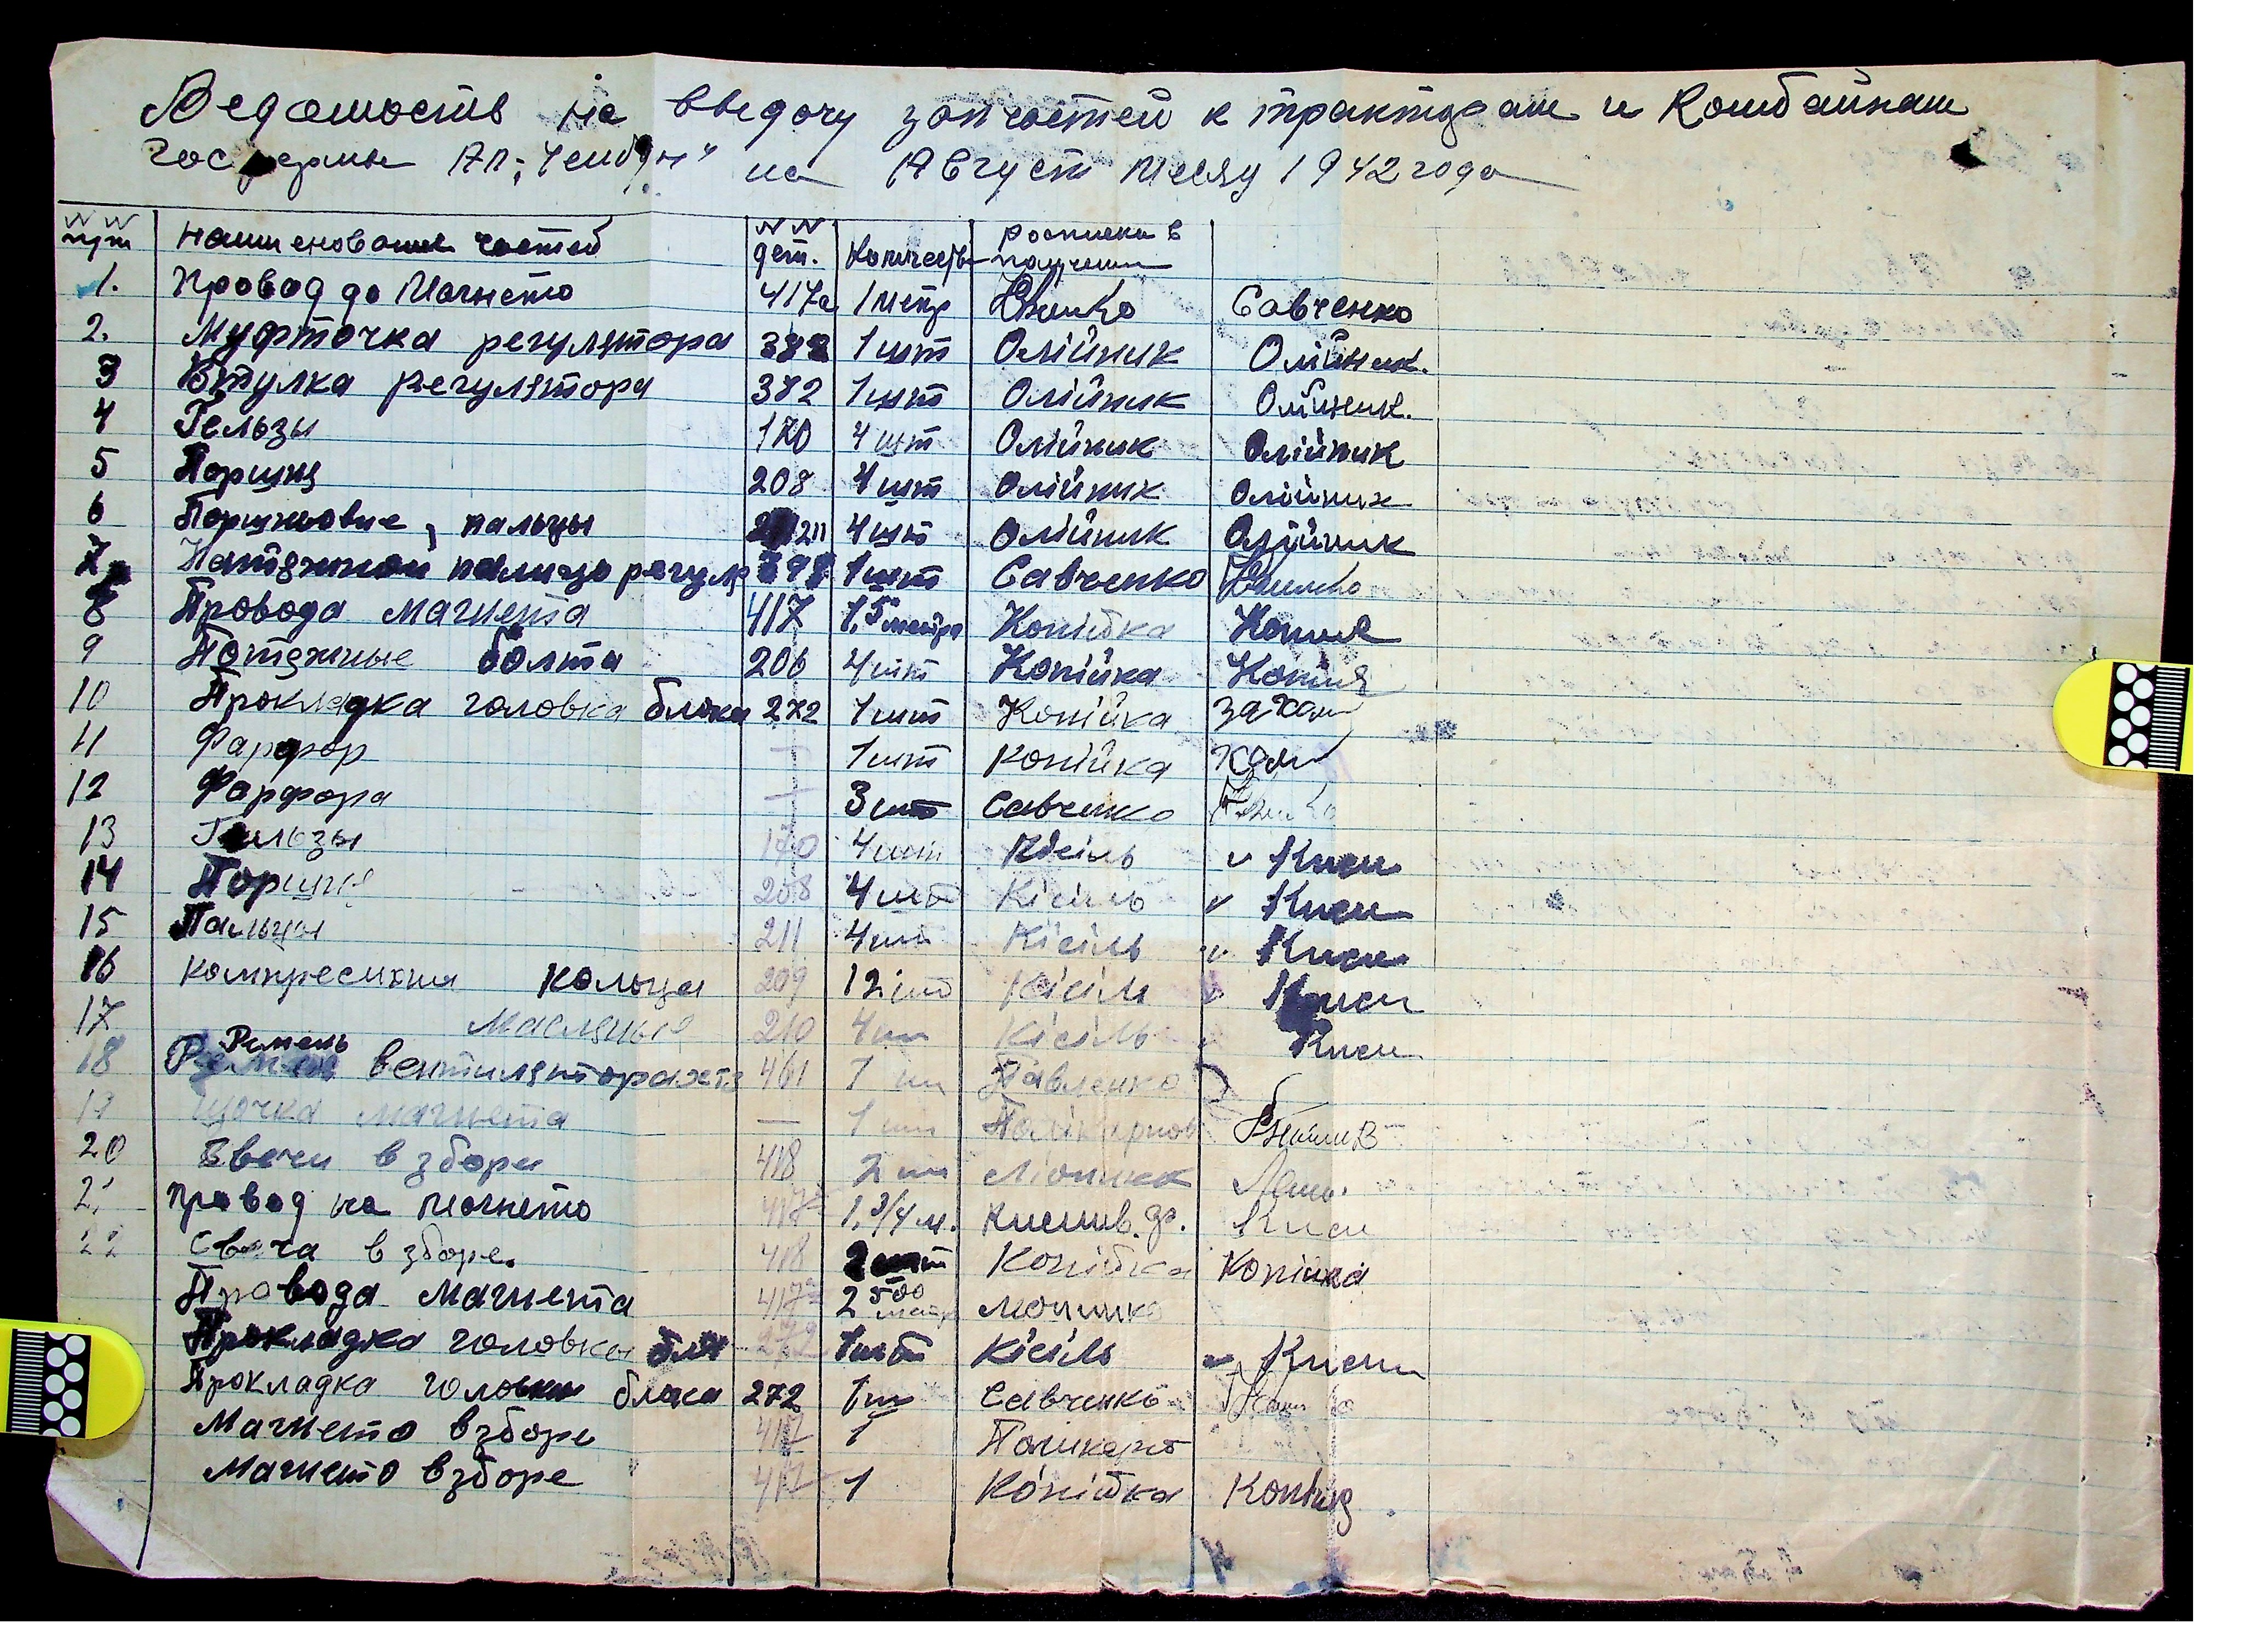 Ведомость на выдачу запчастей к тракторам и Комбайнам
госфермы на Август Месяц 1942 года
NN пун Наименование частей NN дет. Количество росписка в получении
1. Провод до Магнето 417а 1 метр Савченко
2. Муфточка регулятора 1 шт Олійник Олійник.
3 Втулка регулятора 382 1 шт Олійник Олійник.
4 Гельзы 170 4 шт Олійник Олійник
5 Поршня 208 4 шт Олійник Олійник
6 Поршновие, пальцы 211 4 шт Олійник Олійник
7 Натяжной регуля 1 шт Савченко
8 Провода магнета 417 1,5 метра Копійка
9 Потяжные болта 206 4 шт Копійка
10 Прокладка головка блока 272 1 шт Копійка
11 Фарфор — 1 шт Копійка
12 Фарфора — 3 шт Савченко
13 Гильзы 170 4 шт Кісіль v Киси
14 Поршня 208 4 шт Кісіль v Киси
15 Пальцы 211 4 шт Кісіль v Киси
16 Компресихия Кольца 209 12 шт Кісіль v Киси
17 Масляные 210 4 шт Кісіль Киси
18 Ремень вентилятора хтз 461 1 шт Павленко
19 Щочка магнета — 1 шт
20 Свечи в зборе 418 2 шт
21 Провод на магнето 417 1,3/4 м. Киси
22 Свеча в зборе. 418 2 шт Копійка Копійка
Провода магнета 417 2 500 метр
Прокладка головки блок 272 1 шт Кісіль Киси
Прокладка головки блока 272 1 шт Савченко
Магнето в зборе 417 1
Магнето в зборе 417 1 Копійка